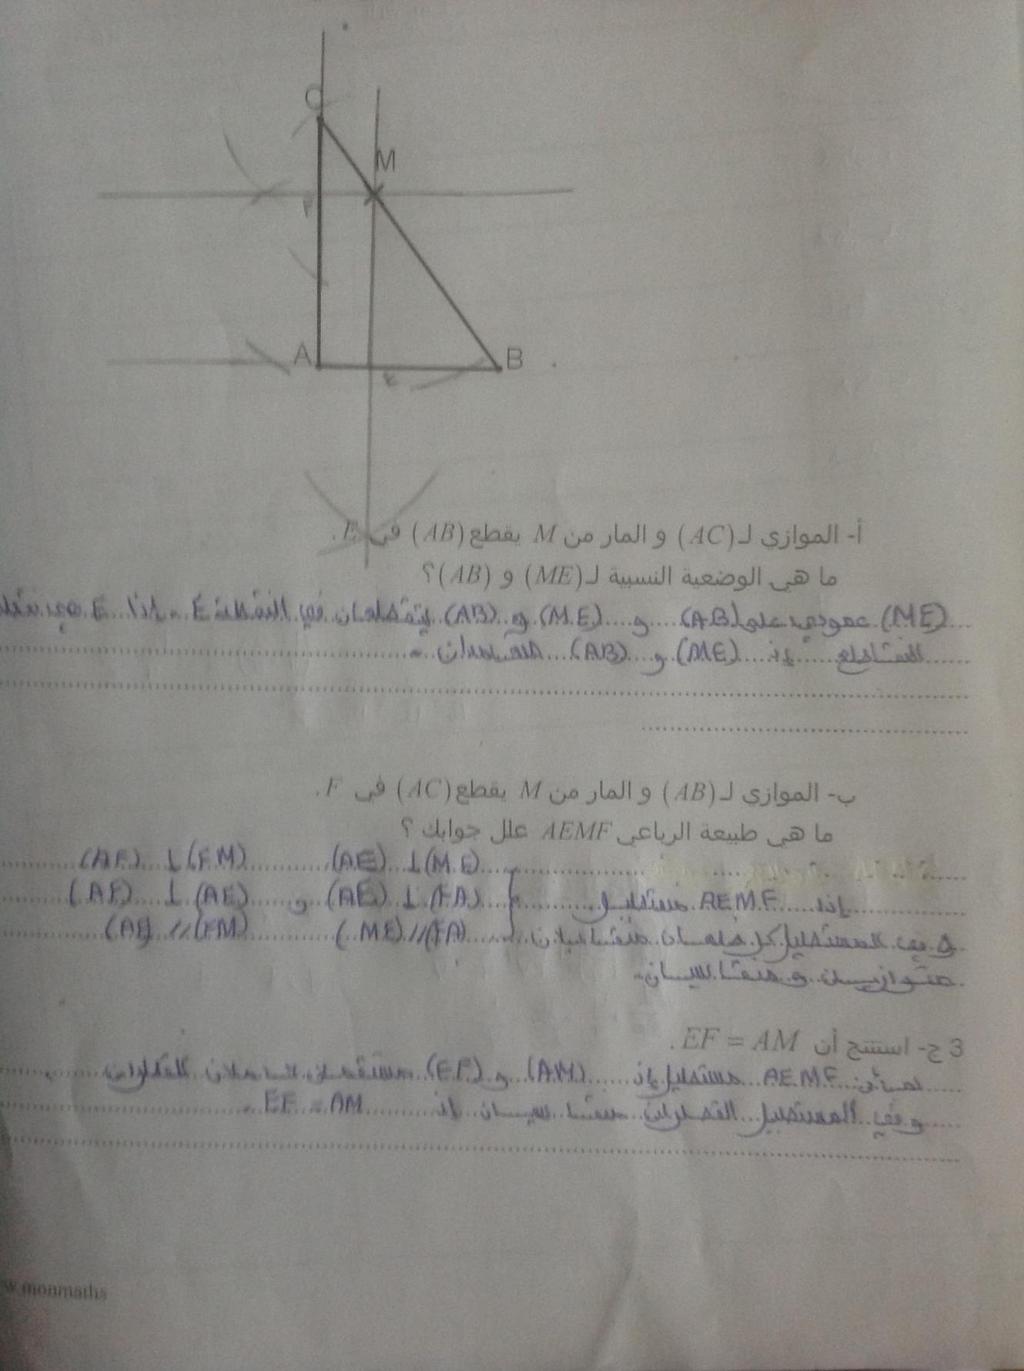 C
M
F
A
B
E
أ- الموازي لـ (AC) و المار من M يقطع (AB) في E.
ما هي الوضعية النسبية لـ (ME) و (AB)؟
(ME) عمودي على (AB) و (ME) و (AB) يتقطعان في النقطة E - إذا E هي نقطة
التقاطع إذ (ME) و (AB) متعامدان -
ب- الموازي لـ (AB) و المار من M يقطع (AC) في F.
ما هي طبيعة الرباعي AEMF علل جوابك ؟
(AE) ⊥ (ME) (AF) ⊥ (FM)
إذا AEMF مستطيل (AE) ⊥ (FA) و (AF) ⊥ (AE)
و في المستطيل كل ضلعان متقابلان (ME) // (FA) (AE) // (FM)
متوازيين و متقايسان -
3 ج- استنتج أن EF = AM .
لدينا AEMF مستطيل إذ (AM) و (EF) القطران
و في المستطيل القطران متقايسان إذ EF = AM -
w.monmaths